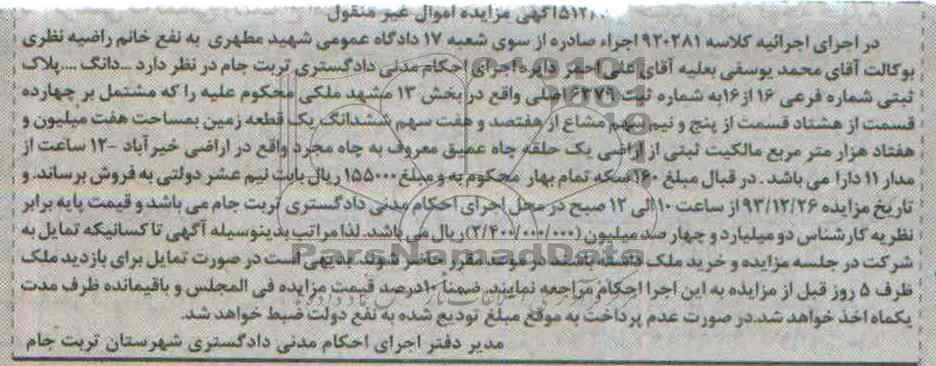 ۵۱۲/۰آگهی مزایده اموال غیر منقول
در اجرای اجرائیه کلاسه ۹۲۰۲۸۱ اجراء صادره از سوی شعبه ۱۷ دادگاه عمومی شهید مطهری به نفع خانم راضیه نظری
بوکالت آقای محمد یوسفی بعلیه آقای علی احمر دایره اجرای احکام مدنی دادگستری تربت جام در نظر دارد ...دانگ ....پلاک
ثبتی شماره فرعی ۱۶ از ۱۶به شماره ثبت ۶۲۷۹ اصلی واقع در بخش ۱۳ مشهد ملکی محکوم علیه را که مشتمل بر چهارده
قسمت از هشتاد قسمت از پنج و نیم سهم مشاع از هفتصد و هفت سهم ششدانگ یک قطعه زمین بمساحت هفت میلیون و
هفتاد هزار متر مربع مالکیت ثبتی از اراضی یک حلقه چاه عمیق معروف به چاه مجرد واقع در اراضی خیرآباد -۱۲ ساعت از
مدار ۱۱ دارا می باشد . در قبال مبلغ ۱۶۰ سکه تمام بهار محکوم به و مبلغ ۱۵۵۰۰۰ ریال بابت نیم عشر دولتی به فروش برساند. و
تاریخ مزایده ۹۳/۱۲/۲۶ از ساعت ۱۰ الی ۱۲ صبح در محل اجرای احکام مدنی دادگستری تربت جام می باشد و قیمت پایه برابر
نظریه کارشناس دو میلیارد و چهار صد میلیون (۲/۴۰۰/۰۰۰/۰۰۰) ریال می باشد. لذا مراتب بدینوسیله آگهی تا کسانیکه تمایل به
شرکت در جلسه مزایده و خرید ملک داشته باشند در موعد مقرر حاضر شوند. بدیهی است در صورت تمایل برای بازدید ملک
ظرف ۵ روز قبل از مزایده به این اجرا احکام مراجعه نمایند. ضمناً ۱۰درصد قیمت مزایده فی المجلس و باقیمانده ظرف مدت
یکماه اخذ خواهد شد.در صورت عدم پرداخت به موقع مبلغ تودیع شده به نفع دولت ضبط خواهد شد.
مدیر دفتر اجرای احکام مدنی دادگستری شهرستان تربت جام
ParsNamadData